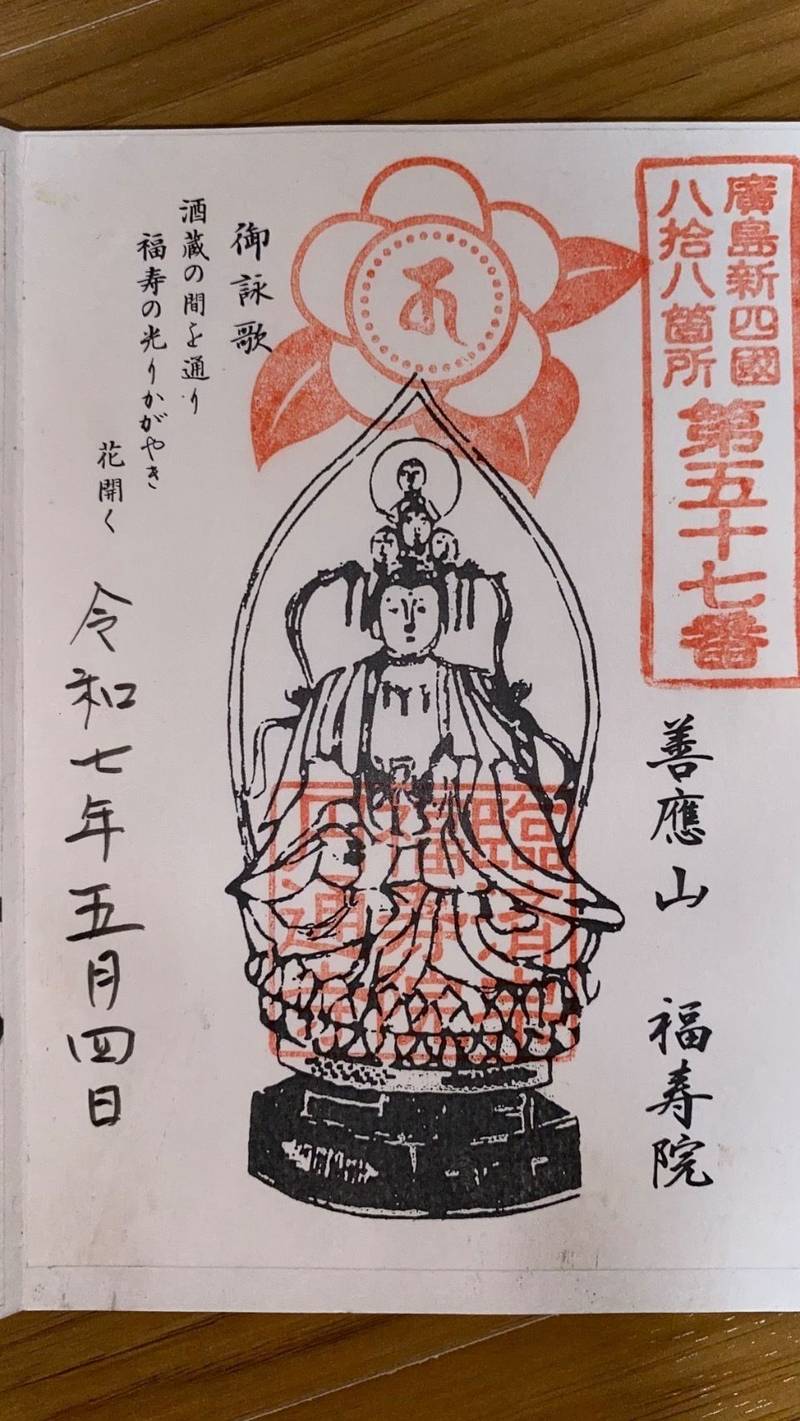 廣島新四國
八拾八箇所
第五十七番
善應山 福寿院
御詠歌
酒蔵の間を通り
福寿の光りかがやき
花開く
令和七年五月四日